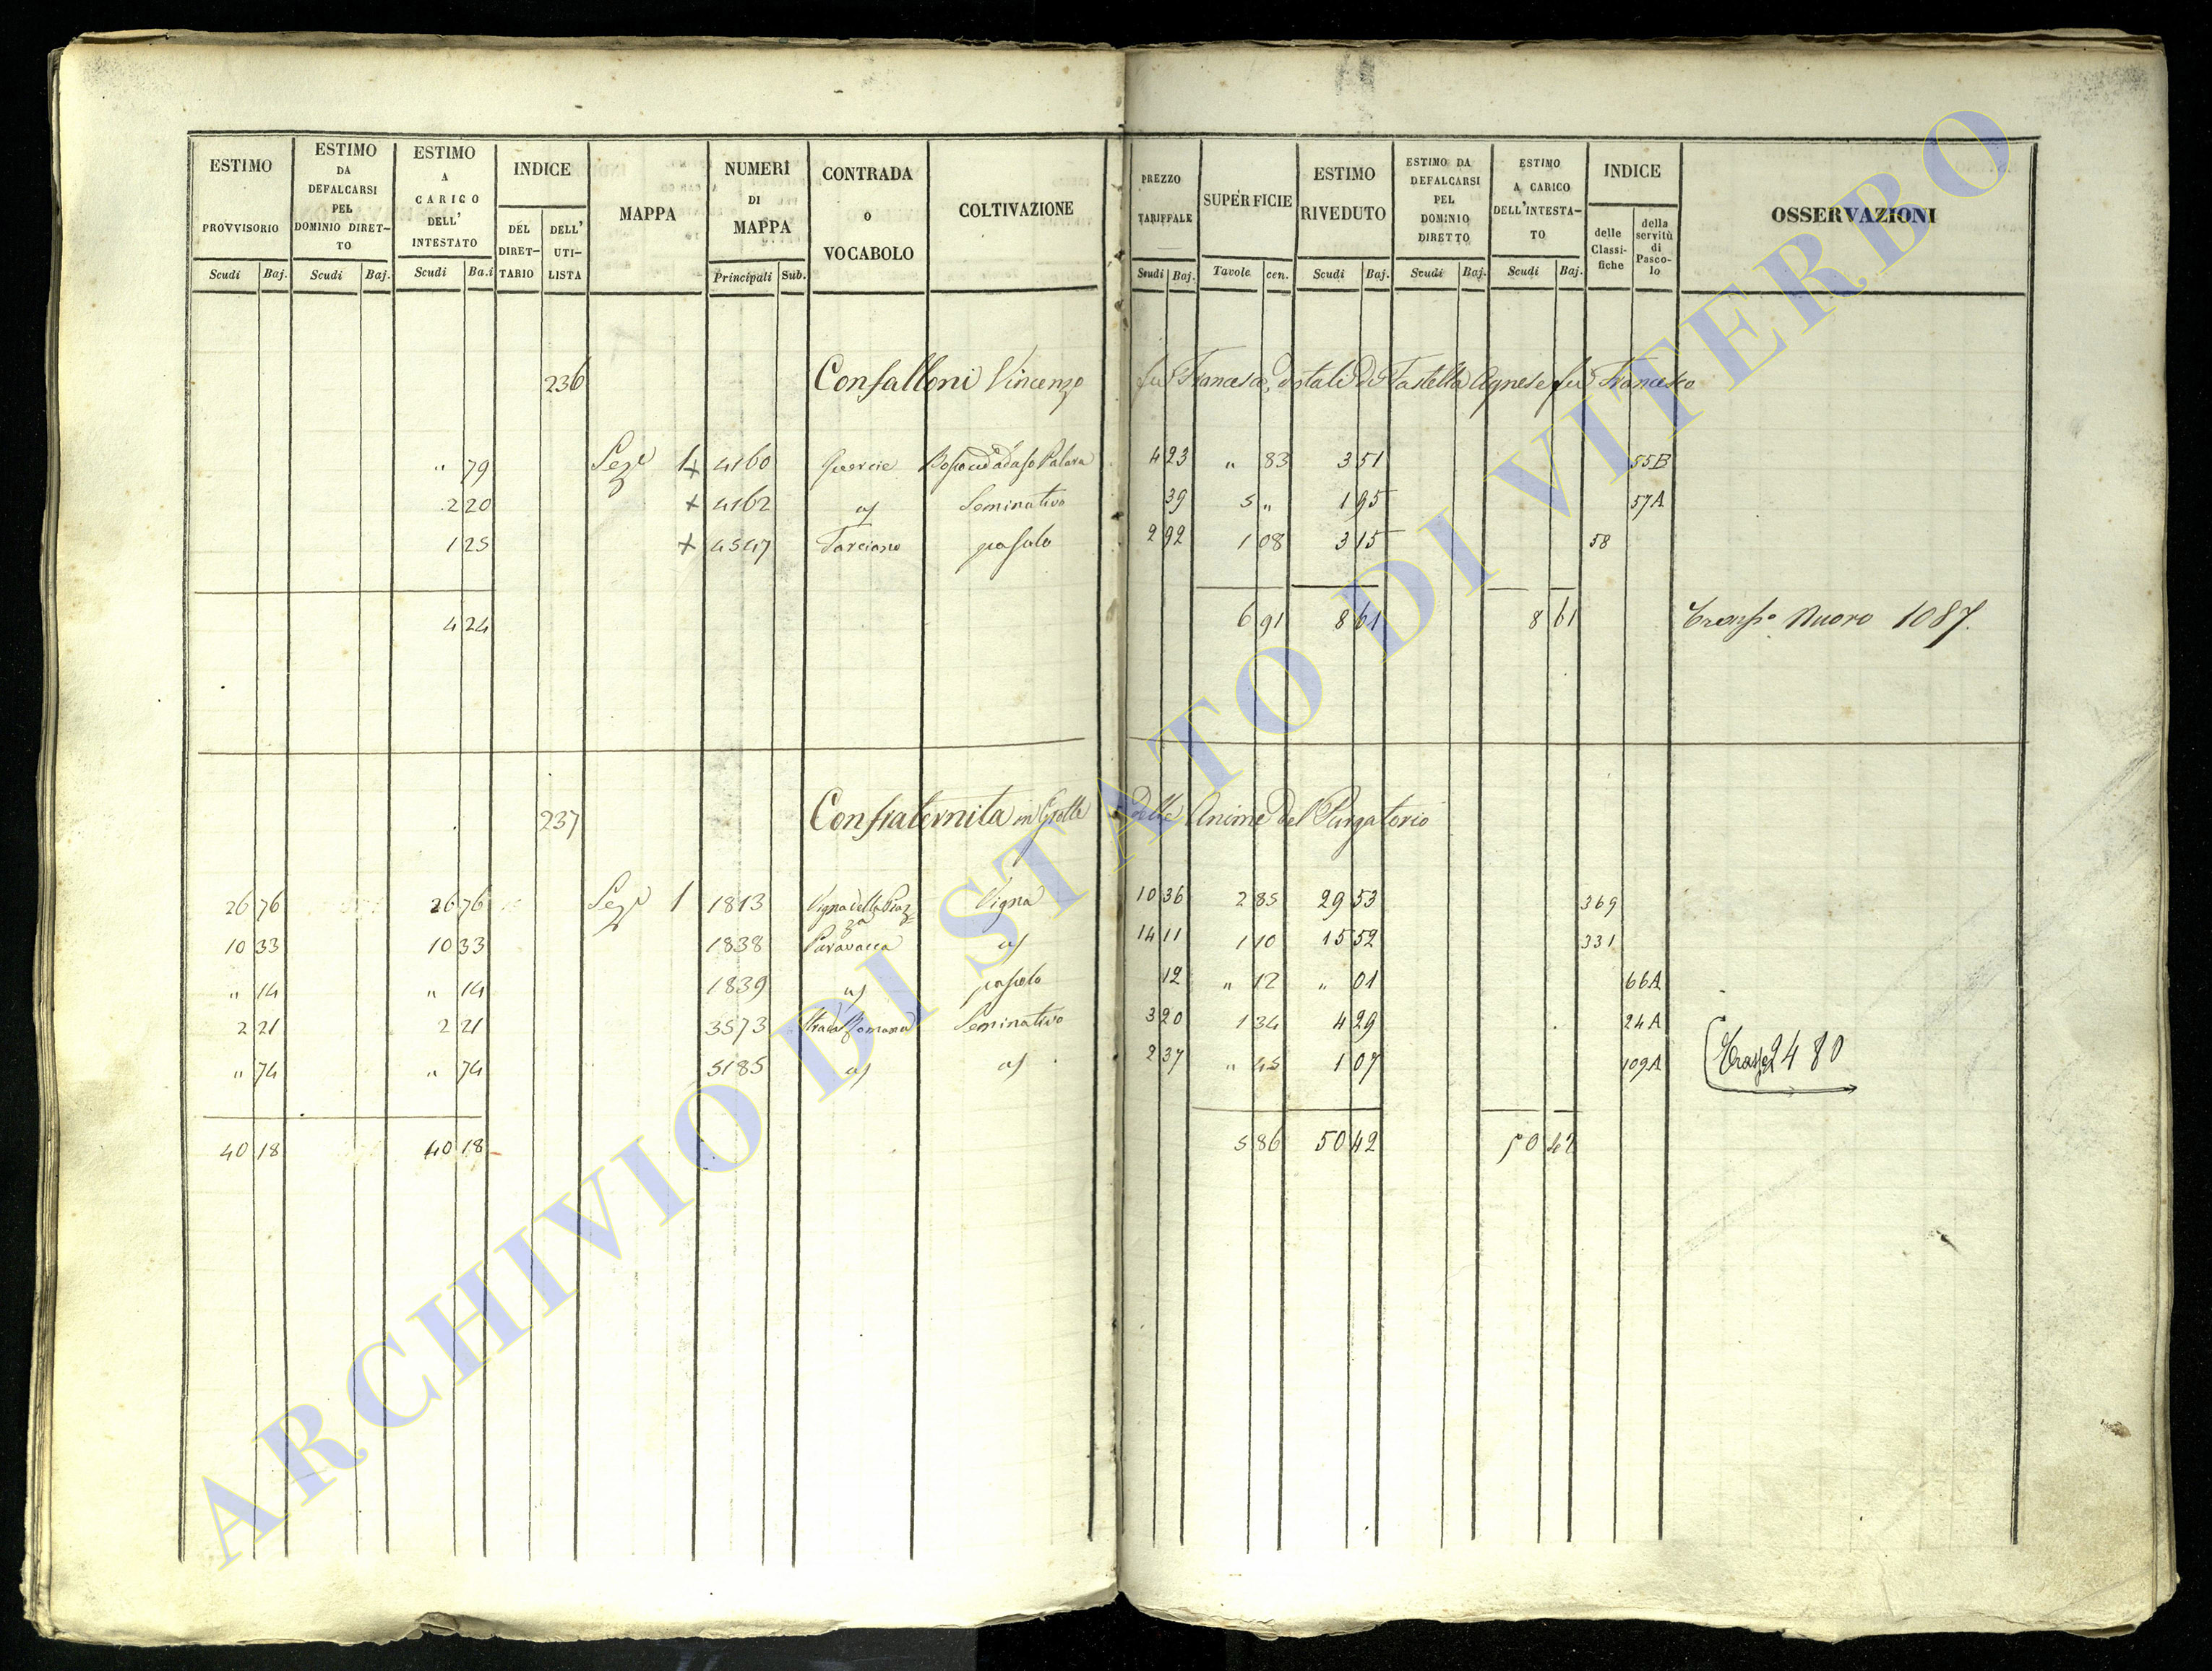 ESTIMO PROVVISORIO Scudi Baj.
ESTIMO DA DEFALCARSI PEL DOMINIO DIRET-TO Scudi Baj.
ESTIMO A CARICO DELL' INTESTATO Scudi Ba.i
INDICE DEL DIRET-TARIO DELL' UTI-LISTA
MAPPA
NUMERI DI MAPPA Principali Sub.
CONTRADA O VOCABOLO
COLTIVAZIONE
PREZZO TARIFFALE Scudi Baj.
SUPERFICIE Tavole cen.
ESTIMO RIVEDUTO Scudi Baj.
ESTIMO DA DEFALCARSI PEL DOMINIO DIRETTO Scudi Baj.
ESTIMO A CARICO DELL'INTESTA-TO Scudi Baj.
INDICE delle Classi-fiche della servitù di Pasco-lo
OSSERVAZIONI
236 Confalloni Vincenzo fu Francesco, dotali di Tastella Agnese fu Francesco
" 79 Sez.e 1 + 4160 Quercie 4 23 " 83 3 51 55B
2 20 + 4162 Seminativo 39 5 " 1 95 57A
1 25 + 4547 pascolo 2 92 1 08 3 15 58
4 24 6 91 8 61 8 61 Nuovo 1087.
237 Confraternita in Grotte delle Anime del Purgatorio
26 76 26 76 Sez.e 1 1813 Vigna della Piaz-za Vigna 10 36 2 85 29 53 369
10 33 10 33 1838 14 11 1 10 15 52 331
" 14 " 14 1839 pascolo 12 " 12 " 01 66A
2 21 2 21 3573 Strada Romana Seminativo 3 20 1 34 4 29 24A
" 74 " 74 5185 2 37 " 45 1 07 109A 2480
40 18 40 18 5 86 50 42 50 42
ARCHIVIO DI STATO DI VITERBO